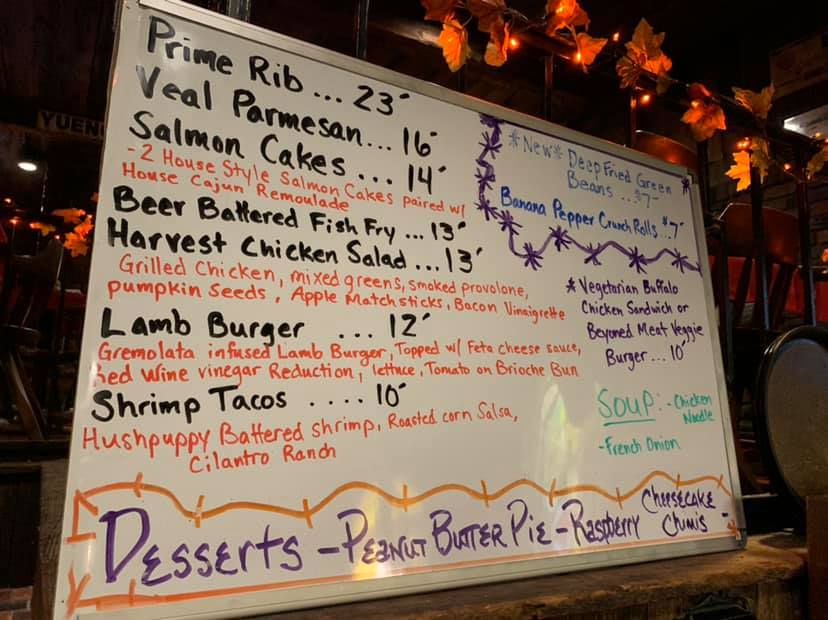 Prime Rib ... 23-
Veal Parmesan... 16-
Salmon Cakes ... 14-
-2 House Style Salmon Cakes paired w/
House Cajun Remoulade
Beer Battered Fish Fry ... 13-
Harvest Chicken Salad ... 13-
Grilled Chicken, mixed greens, smoked provolone,
pumpkin seeds, Apple Matchsticks, Bacon Vinaigrette
Lamb Burger ... 12-
Gremolata infused Lamb Burger, Topped w/ Feta cheese sauce,
Red Wine vinegar Reduction, lettuce, Tomato on Brioche Bun
Shrimp Tacos .... 10-
Hushpuppy Battered shrimp, Roasted corn Salsa,
Cilantro Ranch
*New* Deep Fried Green
Beans ... $7-
Banana Pepper Crunch Rolls ... $7-
* Vegetarian Buffalo
Chicken Sandwich or
Beyoned Meat Veggie
Burger ... 10-
Soup: - Chicken
Noodle
- French Onion
Desserts - Peanut Butter Pie - Raspberry Cheesecake
Chimis -
YUEN